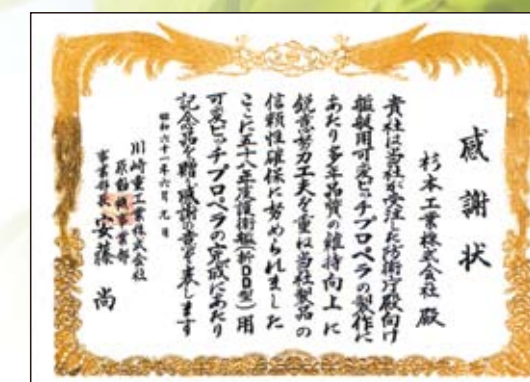 感謝状
杉本工業株式会社 殿
貴社は当社が受注した防衛庁殿向け
艦艇用可変ピッチプロペラの製作に
あたり多年品質の維持向上に
鋭意努力工夫を重ね当社製品の
信頼性確保に努められました
ここに五十八年度護衛艦(新DD型)用
可変ピッチプロペラの完成にあたり
記念品を贈り感謝の意を表します
昭和六十一年六月九日
川崎重工業株式会社
原動機事業部
事業部長 安藤 尚